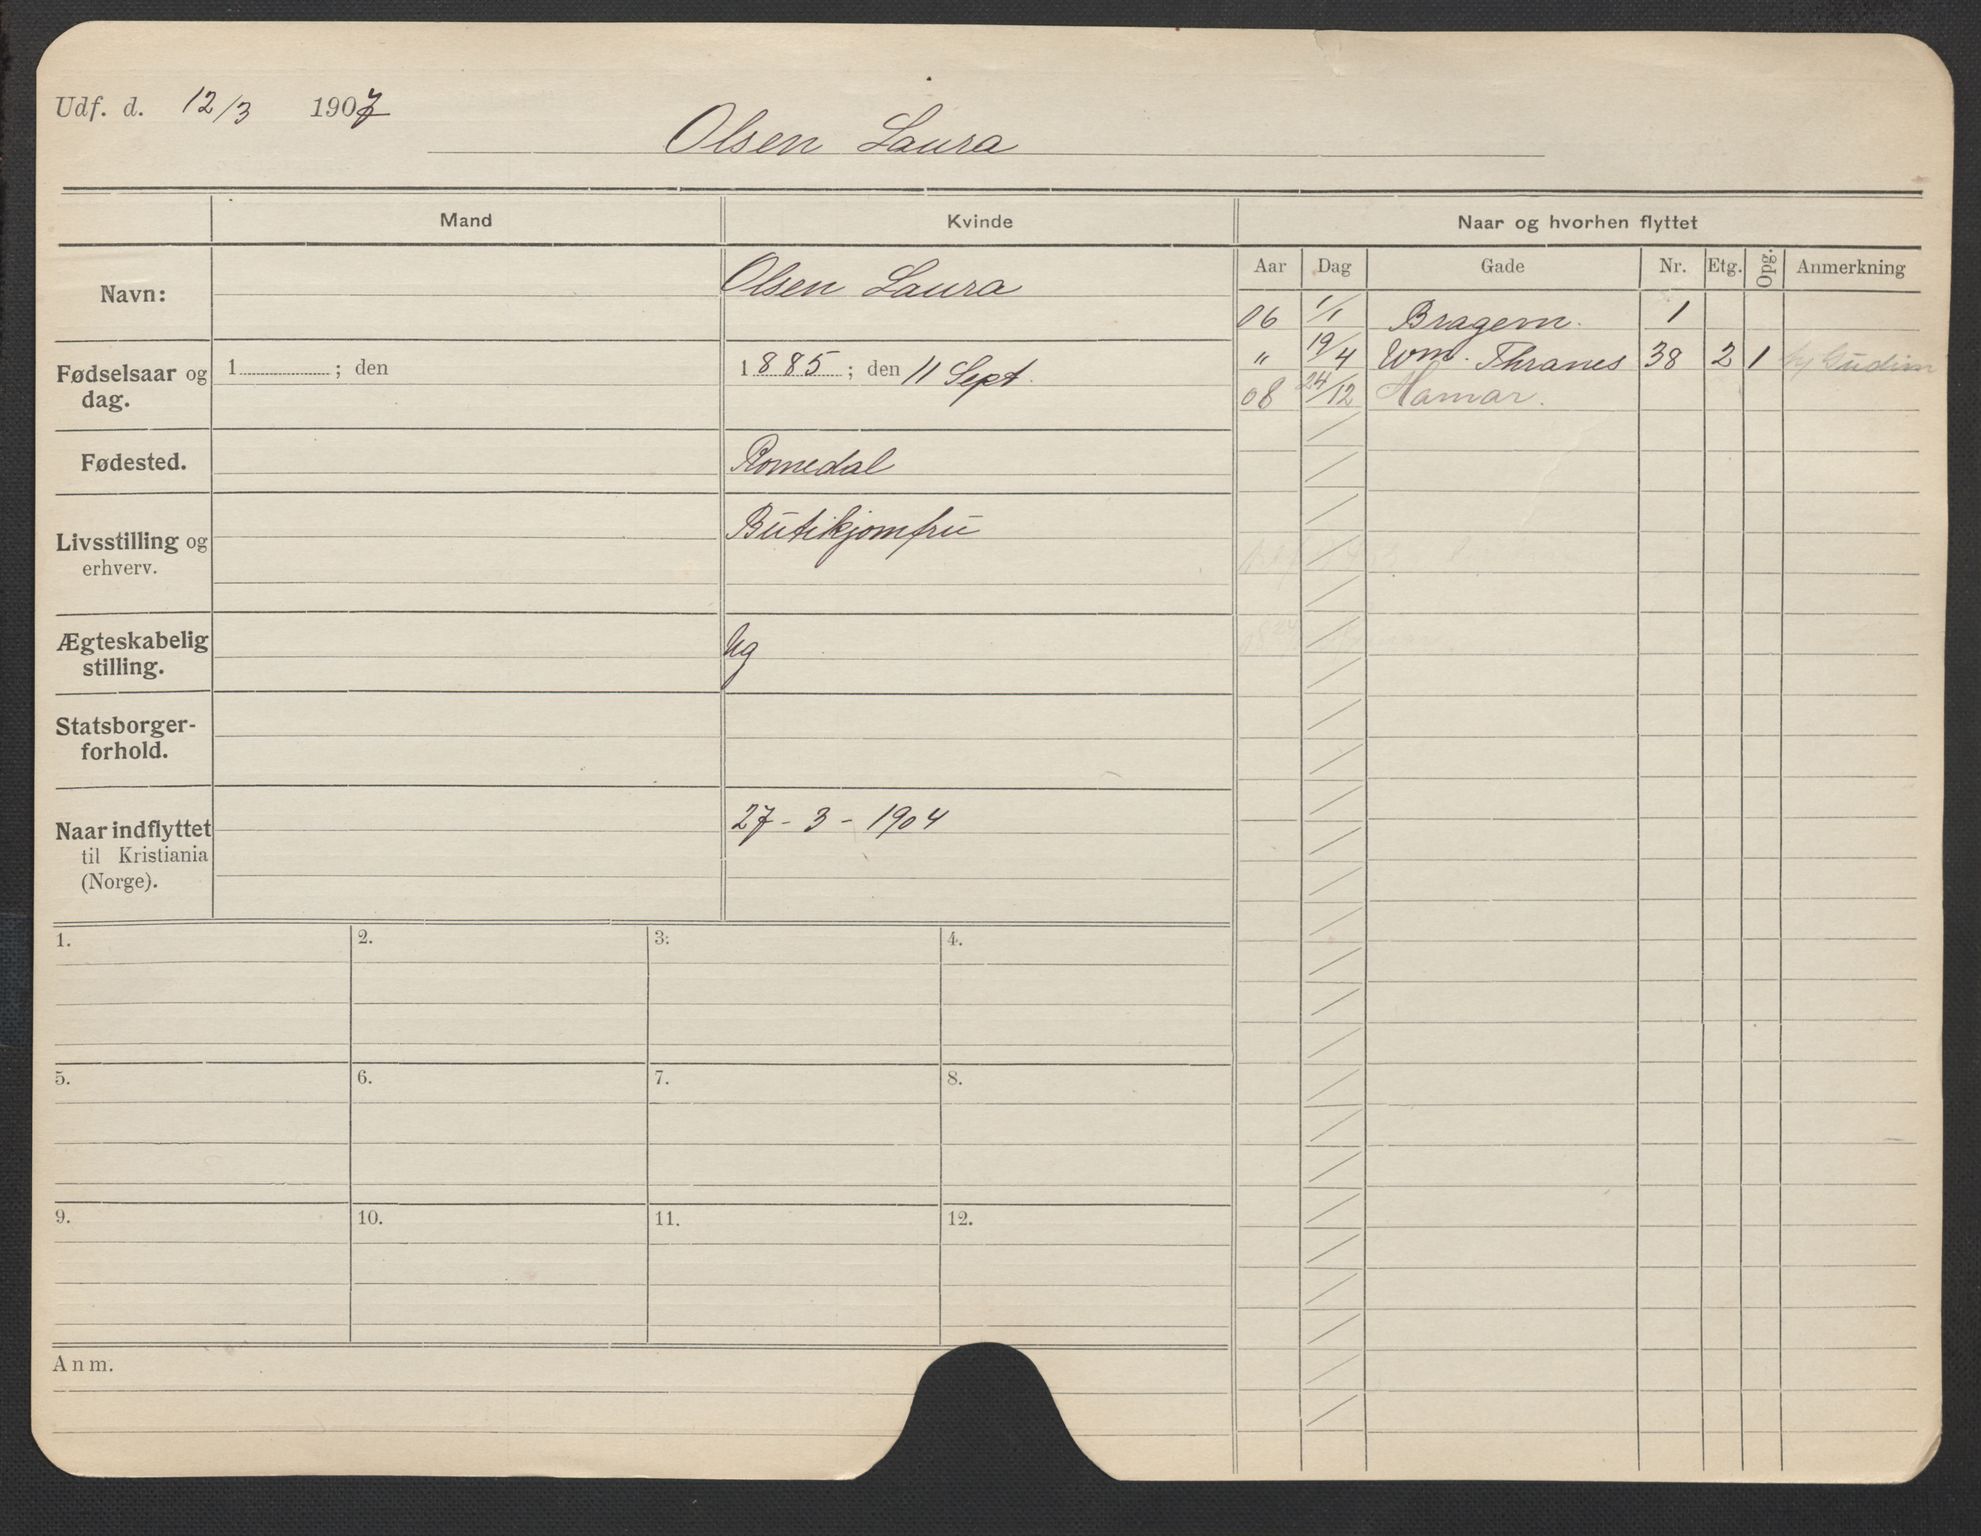 Udf. d. 12/3 1907
Olsen Laura
Mand
Kvinde
Naar og hvorhen flyttet
Navn:
Olsen Laura
Fødselsaar og dag.
1 ; den
1885 ; den 11 Sept.
Fødested.
Romedal
Livsstilling og erhverv.
Butikjomfru
Ægteskabelig stilling.
Ug
Statsborger-
forhold.
Naar indflyttet
til Kristiania
(Norge).
27 - 3 - 1904
Aar Dag Gade Nr. Etg. Opg. Anmerkning
06 1/1 Bragem. 1
" 19/4 Wm. Thranes 38 2 1 Gudim
08 24/12 Hamar.
1. 2. 3. 4.
5. 6. 7. 8.
9. 10. 11. 12.
Anm.